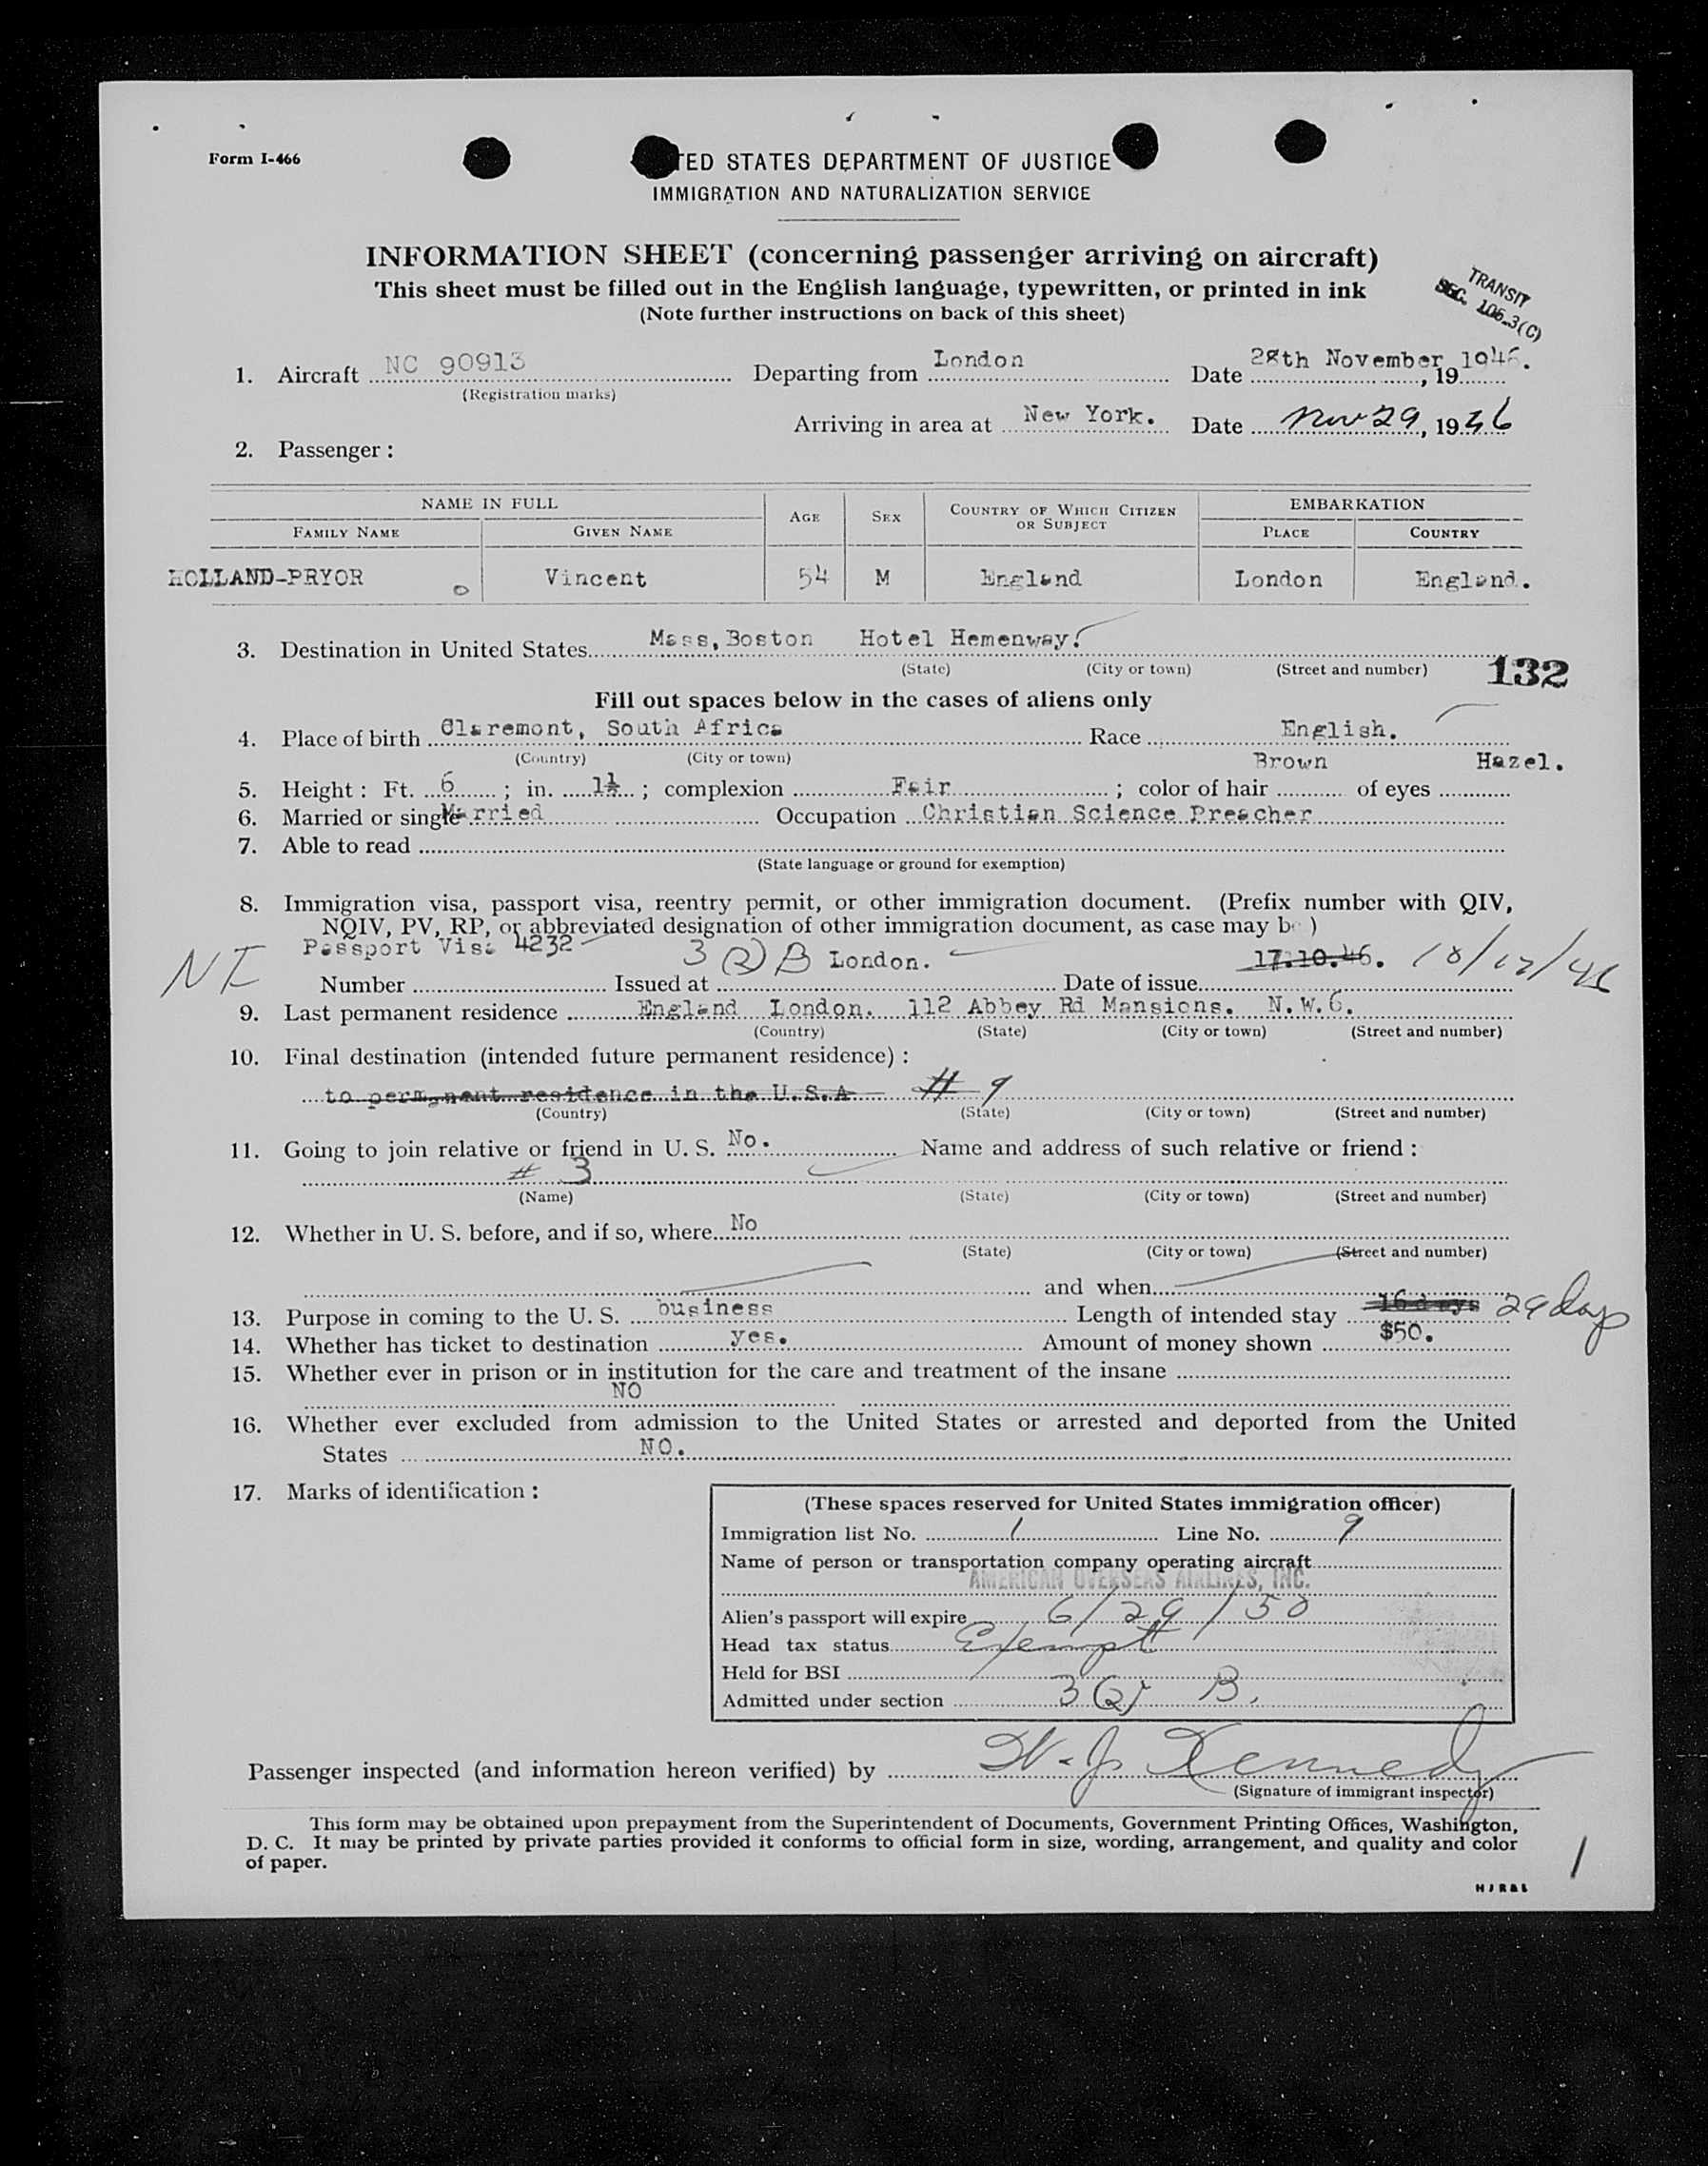 Form I-466
TED STATES DEPARTMENT OF JUSTICE
IMMIGRATION AND NATURALIZATION SERVICE
INFORMATION SHEET (concerning passenger arriving on aircraft)
This sheet must be filled out in the English language, typewritten, or printed in ink
(Note further instructions on back of this sheet)
TRANSIT
SEC. 106.3(C)
1. Aircraft NC 90913 Departing from London Date 28th November, 1946.
(Registration marks)
Arriving in area at New York. Date Nov 29, 1946
2. Passenger:
NAME IN FULL AGE SEX COUNTRY OF WHICH CITIZEN OR SUBJECT EMBARKATION
FAMILY NAME GIVEN NAME PLACE COUNTRY
HOLLAND-PRYOR Vincent 54 M England London England.
3. Destination in United States Mass, Boston Hotel Hemenway.
(State) (City or town) (Street and number)
132
Fill out spaces below in the cases of aliens only
4. Place of birth Claremont, South Africa Race English.
(Country) (City or town)
Brown Hazel.
5. Height: Ft. 6; in. 1½; complexion Fair; color of hair of eyes
6. Married or single Married Occupation Christian Science Preacher
7. Able to read
(State language or ground for exemption)
8. Immigration visa, passport visa, reentry permit, or other immigration document. (Prefix number with QIV,
NQIV, PV, RP, or abbreviated designation of other immigration document, as case may b )
NI Passport Visa 4232 3(2)B London. 17.10.46. 10/17/46
Number Issued at Date of issue
9. Last permanent residence England London. 112 Abbey Rd Mansions. N.W.6.
(Country) (State) (City or town) (Street and number)
10. Final destination (intended future permanent residence):
to permanent residence in the U.S.A # 9
(Country) (State) (City or town) (Street and number)
11. Going to join relative or friend in U. S. No. Name and address of such relative or friend:
# 3
(Name) (State) (City or town) (Street and number)
12. Whether in U. S. before, and if so, where No
(State) (City or town) (Street and number)
and when
13. Purpose in coming to the U. S. business Length of intended stay 16 days 29 days
14. Whether has ticket to destination yes. Amount of money shown $50.
15. Whether ever in prison or in institution for the care and treatment of the insane
NO
16. Whether ever excluded from admission to the United States or arrested and deported from the United
States NO.
17. Marks of identification:
(These spaces reserved for United States immigration officer)
Immigration list No. 1 Line No. 9
Name of person or transportation company operating aircraft
AMERICAN OVERSEAS AIRLINES, INC.
Alien's passport will expire 6/29/50
Head tax status Exempt
Held for BSI
Admitted under section 3(2) B.
Passenger inspected (and information hereon verified) by W. J. Kennedy
(Signature of immigrant inspector)
This form may be obtained upon prepayment from the Superintendent of Documents, Government Printing Offices, Washington,
D. C. It may be printed by private parties provided it conforms to official form in size, wording, arrangement, and quality and color
of paper.
1